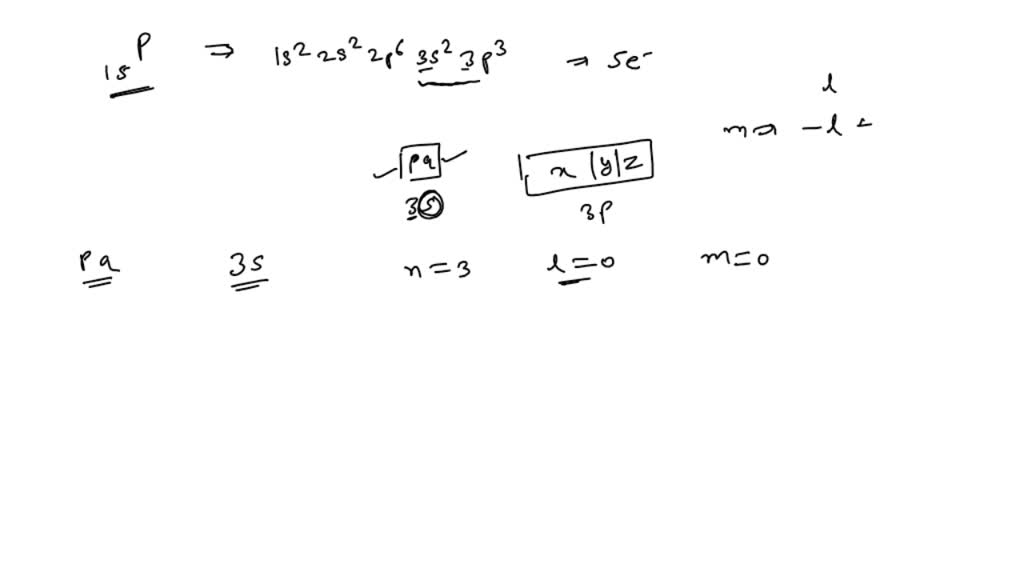 15P ⇒ 1s² 2s² 2p⁶ 3s² 3p³ ⇒ 5e⁻
l
m ⇒ -l
pq x|y|z
3s 3p
pq 3s n=3 l=0 m=0